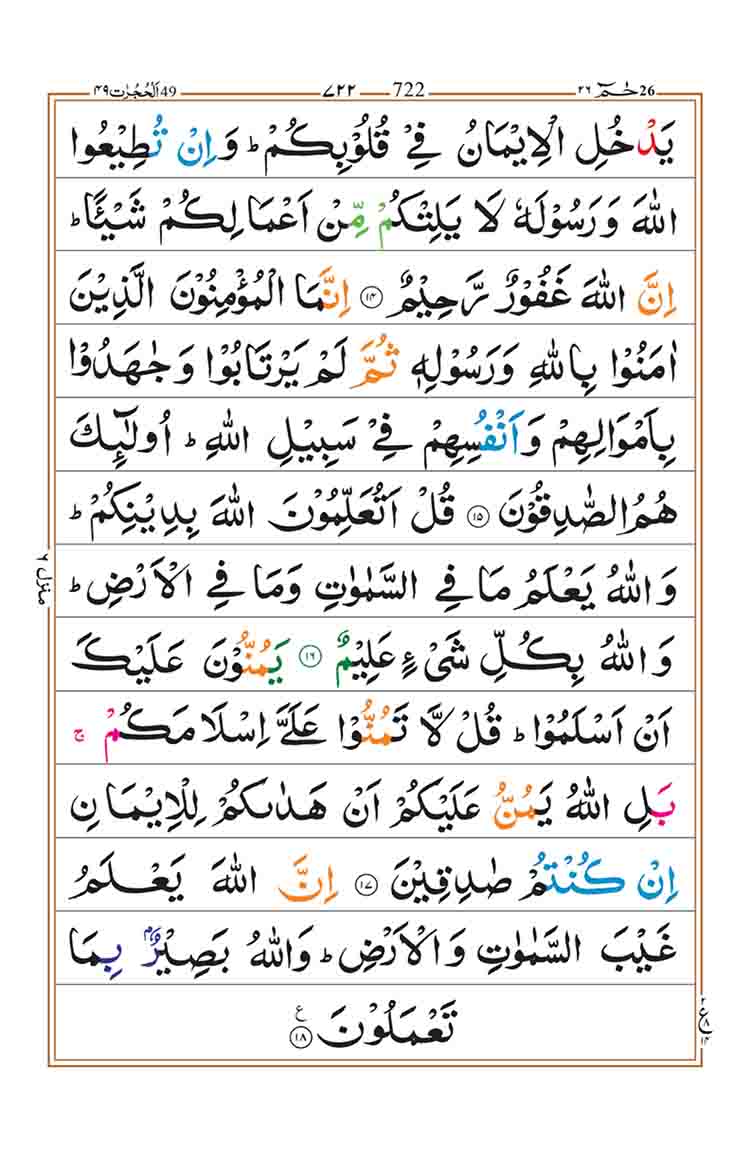 26 حٰمٓ ٢٦ 722 ٧٢٢ 49 اَلْحُجُرٰت ٤٩
يَدْخُلِ الْاِيْمَانُ فِيْ قُلُوْبِكُمْ ؕ وَاِنْ تُطِيْعُوا
اللّٰهَ وَرَسُوْلَهٗ لَا يَلِتْكُمْ مِّنْ اَعْمَالِكُمْ شَيْـًٔا ؕ
اِنَّ اللّٰهَ غَفُوْرٌ رَّحِيْمٌ ۝۱۴ اِنَّمَا الْمُؤْمِنُوْنَ الَّذِيْنَ
اٰمَنُوْا بِاللّٰهِ وَرَسُوْلِهٖ ثُمَّ لَمْ يَرْتَابُوْا وَجٰهَدُوْا
بِاَمْوَالِهِمْ وَاَنْفُسِهِمْ فِيْ سَبِيْلِ اللّٰهِ ؕ اُولٰٓئِكَ
هُمُ الصّٰدِقُوْنَ ۝۱۵ قُلْ اَتُعَلِّمُوْنَ اللّٰهَ بِدِيْنِكُمْ ؕ
وَاللّٰهُ يَعْلَمُ مَا فِي السَّمٰوٰتِ وَمَا فِي الْاَرْضِ ؕ
وَاللّٰهُ بِكُلِّ شَيْءٍ عَلِيْمٌ ۝۱۶ يَمُنُّوْنَ عَلَيْكَ
اَنْ اَسْلَمُوْا ؕ قُلْ لَّا تَمُنُّوْا عَلَيَّ اِسْلَامَكُمْ ۚ
بَلِ اللّٰهُ يَمُنُّ عَلَيْكُمْ اَنْ هَدٰىكُمْ لِلْاِيْمَانِ
اِنْ كُنْتُمْ صٰدِقِيْنَ ۝۱۷ اِنَّ اللّٰهَ يَعْلَمُ
غَيْبَ السَّمٰوٰتِ وَالْاَرْضِ ؕ وَاللّٰهُ بَصِيْرٌۢ بِمَا
تَعْمَلُوْنَ ۝۱۸ ع
منزل ٦
٢ ع ٨ ١٤